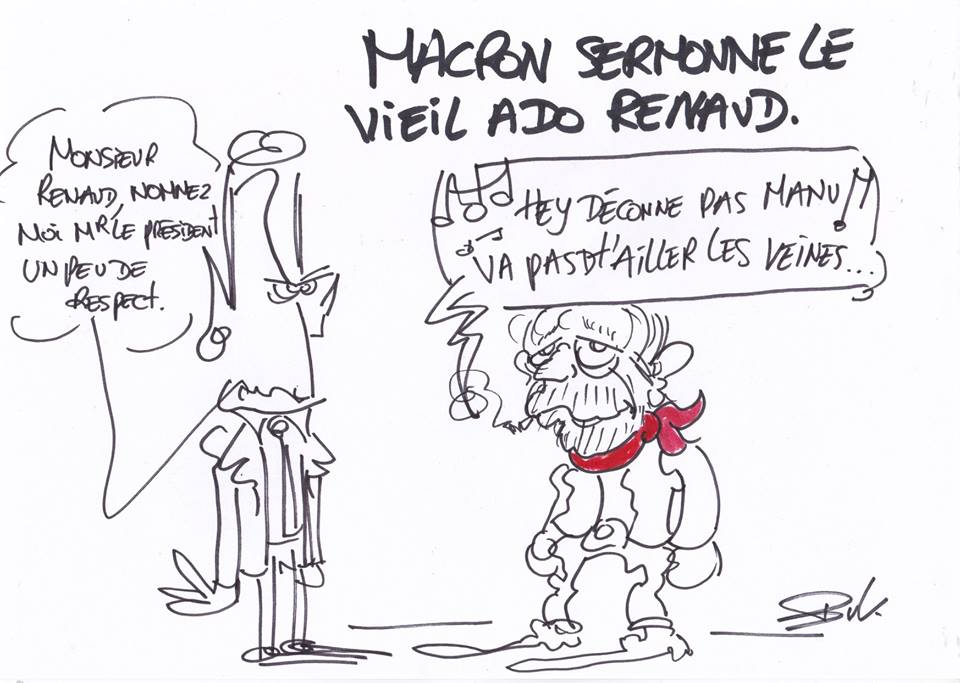 MACRON SERMONNE LE
VIEIL ADO RENAUD.
MONSIEUR
RENAUD, NOMMEZ
MOI MR LE PRESIDENT
UN PEU DE
RESPECT.
HEY DÉCONNE PAS MANU
VA PAS T'AILLER LES VEINES...